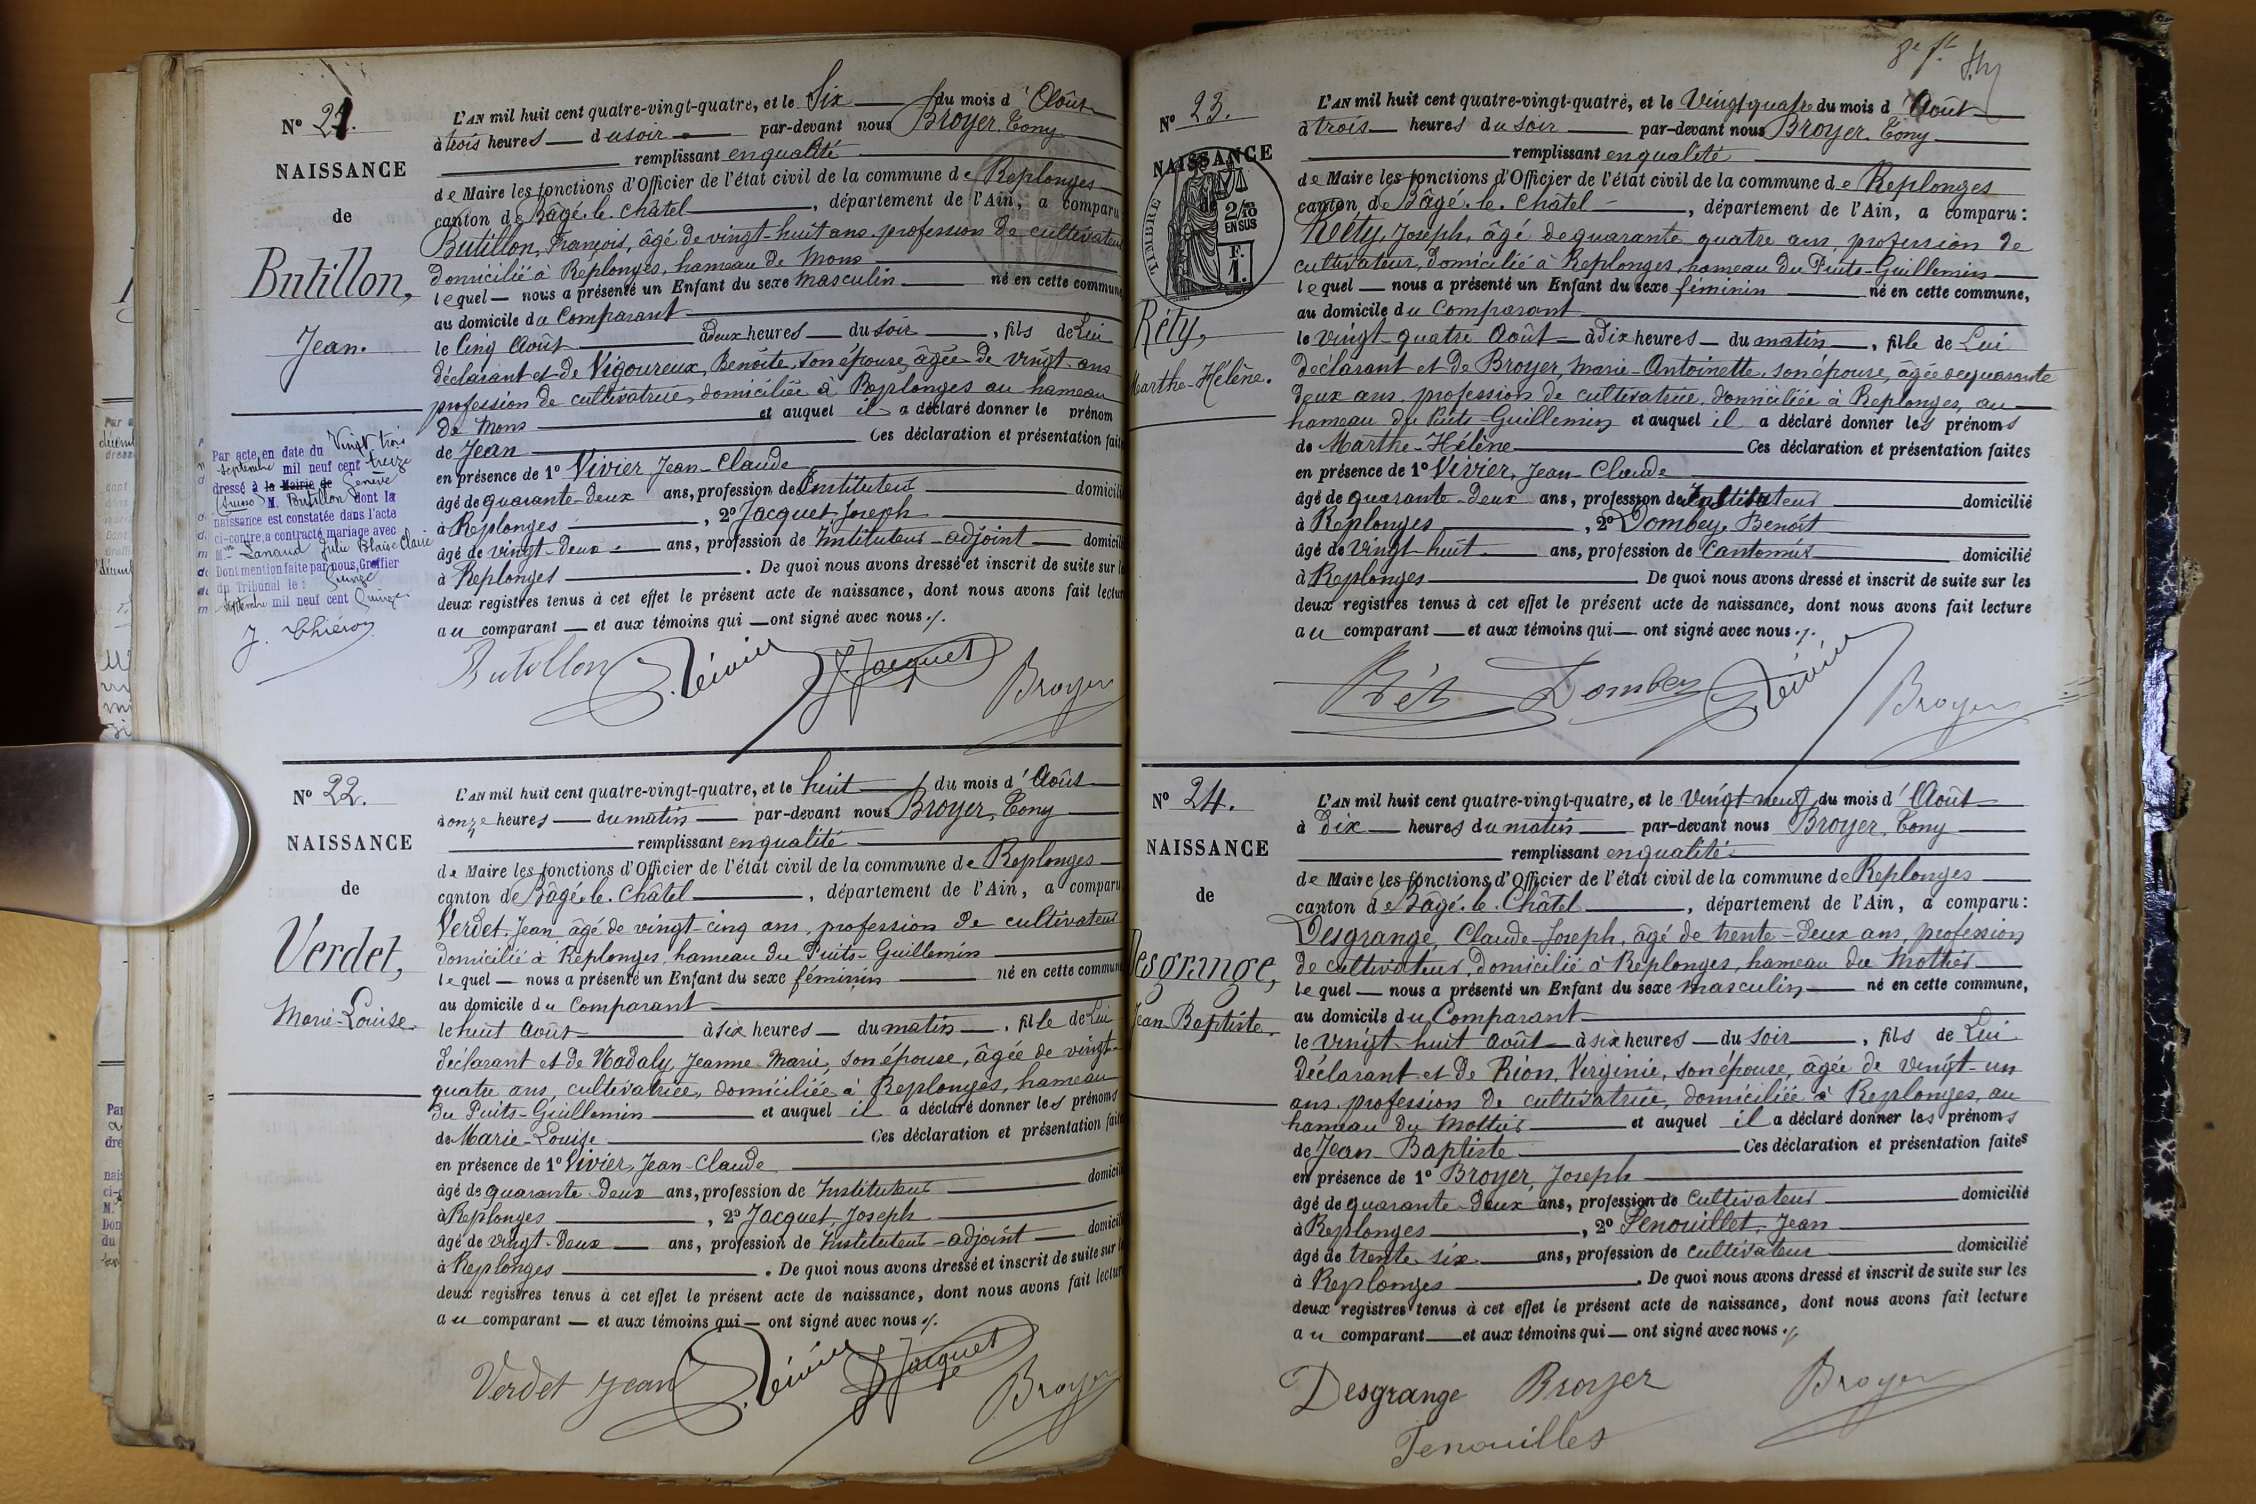 Nº 21.
NAISSANCE
de
Butillon,
Jean.
L'AN mil huit cent quatre-vingt-quatre, et le Six du mois d'Août
à trois heures du soir par-devant nous Broyer, Tony
remplissant en qualité
de Maire les fonctions d'Officier de l'état civil de la commune de Replonges
canton de Bâgé-le-Châtel, département de l'Ain, a comparu
Butillon, François, âgé de vingt-huit ans, profession de cultivateur
domicilié à Replonges, hameau de Mons
lequel nous a présenté un Enfant du sexe masculin né en cette commune
au domicile du Comparant
le Cinq Août à deux heures du soir, fils de Lui
déclarant et de Vigoureux, Benoîte, son épouse, âgée de vingt ans
profession de cultivatrice, domiciliée à Replonges au hameau
de Mons et auquel il a déclaré donner le prénom
de Jean Ces déclaration et présentation faites
en présence de 1º Vivier Jean-Claude
âgé de quarante-deux ans, profession de Instituteur domicilié
à Replonges, 2º Jacquet Joseph
âgé de vingt-deux ans, profession de Instituteur-adjoint domicilié
à Replonges. De quoi nous avons dressé et inscrit de suite sur les
deux registres tenus à cet effet le présent acte de naissance, dont nous avons fait lecture
au comparant et aux témoins qui ont signé avec nous ./.
Butillon Vivier J Jacquet Broyer
Par acte en date du Vingt trois
septembre mil neuf cent treize
dressé à la Mairie de Genève
(Suisse) M. Butillon dont la
naissance est constatée dans l'acte
ci-contre, a contracté mariage avec
M Lanaud Julie Blaise Claire
Dont mention faite par nous, Greffier
du Tribunal le : Quinze
septembre mil neuf cent Quinze
Nº 22.
NAISSANCE
de
Verdet,
Marie-Louise.
L'AN mil huit cent quatre-vingt-quatre, et le huit du mois d'Août
à onze heures du matin par-devant nous Broyer, Tony
remplissant en qualité
de Maire les fonctions d'Officier de l'état civil de la commune de Replonges
canton de Bâgé-le-Châtel, département de l'Ain, a comparu
Verdet, Jean âgé de vingt-cinq ans, profession de cultivateur
domicilié à Replonges, hameau du Puits-Guillemin
lequel nous a présenté un Enfant du sexe féminin né en cette commune
au domicile du Comparant
le huit Août à six heures du matin, fille de Lui
déclarant et de Nadaly Jeanne-Marie, son épouse, âgée de vingt-
quatre ans, cultivatrice, domiciliée à Replonges, hameau
du Puits-Guillemin et auquel il a déclaré donner les prénoms
de Marie-Louise Ces déclaration et présentation faites
en présence de 1º Vivier, Jean-Claude
âgé de quarante-deux ans, profession de Instituteur domicilié
à Replonges, 2º Jacquet, Joseph
âgé de vingt-deux ans, profession de Instituteur-adjoint domicilié
à Replonges. De quoi nous avons dressé et inscrit de suite sur les
deux registres tenus à cet effet le présent acte de naissance, dont nous avons fait lecture
au comparant et aux témoins qui ont signé avec nous ./.
Verdet Jean Vivier J Jacquet Broyer
Nº 23.
NAISSANCE
TIMBRE
2/10
EN SUS
F.
1.
Réty,
Marthe-Hélène.
L'AN mil huit cent quatre-vingt-quatre, et le Vingt quatre du mois d'Août
à trois heures du soir par-devant nous Broyer, Tony
remplissant en qualité
de Maire les fonctions d'Officier de l'état civil de la commune de Replonges
canton de Bâgé-le-Châtel, département de l'Ain, a comparu :
Réty, Joseph, âgé de quarante quatre ans, profession de
cultivateur, domicilié à Replonges, hameau du Puits-Guillemin
lequel nous a présenté un Enfant du sexe féminin né en cette commune,
au domicile du Comparant
le vingt-quatre Août à dix heures du matin, fille de Lui
déclarant et de Broyer, Marie-Antoinette, son épouse, âgée de quarante
deux ans, profession de cultivatrice, domiciliée à Replonges, au
hameau du Puits-Guillemin et auquel il a déclaré donner les prénoms
de Marthe-Hélène Ces déclaration et présentation faites
en présence de 1º Vivier, Jean-Claude
âgé de quarante-deux ans, profession de Instituteur domicilié
à Replonges, 2º Dombey, Benoît
âgé de vingt-huit ans, profession de Cantonnier domicilié
à Replonges De quoi nous avons dressé et inscrit de suite sur les
deux registres tenus à cet effet le présent acte de naissance, dont nous avons fait lecture
au comparant et aux témoins qui ont signé avec nous ./.
Réty Dombey Vivier Broyer
Nº 24.
NAISSANCE
de
Desgrange,
Jean Baptiste.
L'AN mil huit cent quatre-vingt-quatre, et le Vingt neuf du mois d'Août
à dix heures du matin par-devant nous Broyer, Tony
remplissant en qualité
de Maire les fonctions d'Officier de l'état civil de la commune de Replonges
canton de Bâgé-le-Châtel, département de l'Ain, a comparu :
Desgrange, Claude-Joseph, âgé de trente-deux ans, profession
de cultivateur, domicilié à Replonges, hameau du Mottier
lequel nous a présenté un Enfant du sexe masculin né en cette commune,
au domicile du Comparant
le vingt-huit Août à six heures du soir, fils de Lui
déclarant et de Rion, Virginie, son épouse, âgée de vingt-un
ans, profession de cultivatrice, domiciliée à Replonges, au
hameau du Mottier et auquel il a déclaré donner les prénoms
de Jean-Baptiste Ces déclaration et présentation faites
en présence de 1º Broyer, Joseph
âgé de quarante-deux ans, profession de Cultivateur domicilié
à Replonges, 2º Fenouillet, Jean
âgé de trente six ans, profession de cultivateur domicilié
à Replonges. De quoi nous avons dressé et inscrit de suite sur les
deux registres tenus à cet effet le présent acte de naissance, dont nous avons fait lecture
au comparant et aux témoins qui ont signé avec nous ./.
Desgrange Broyer Broyer
Fenouillet